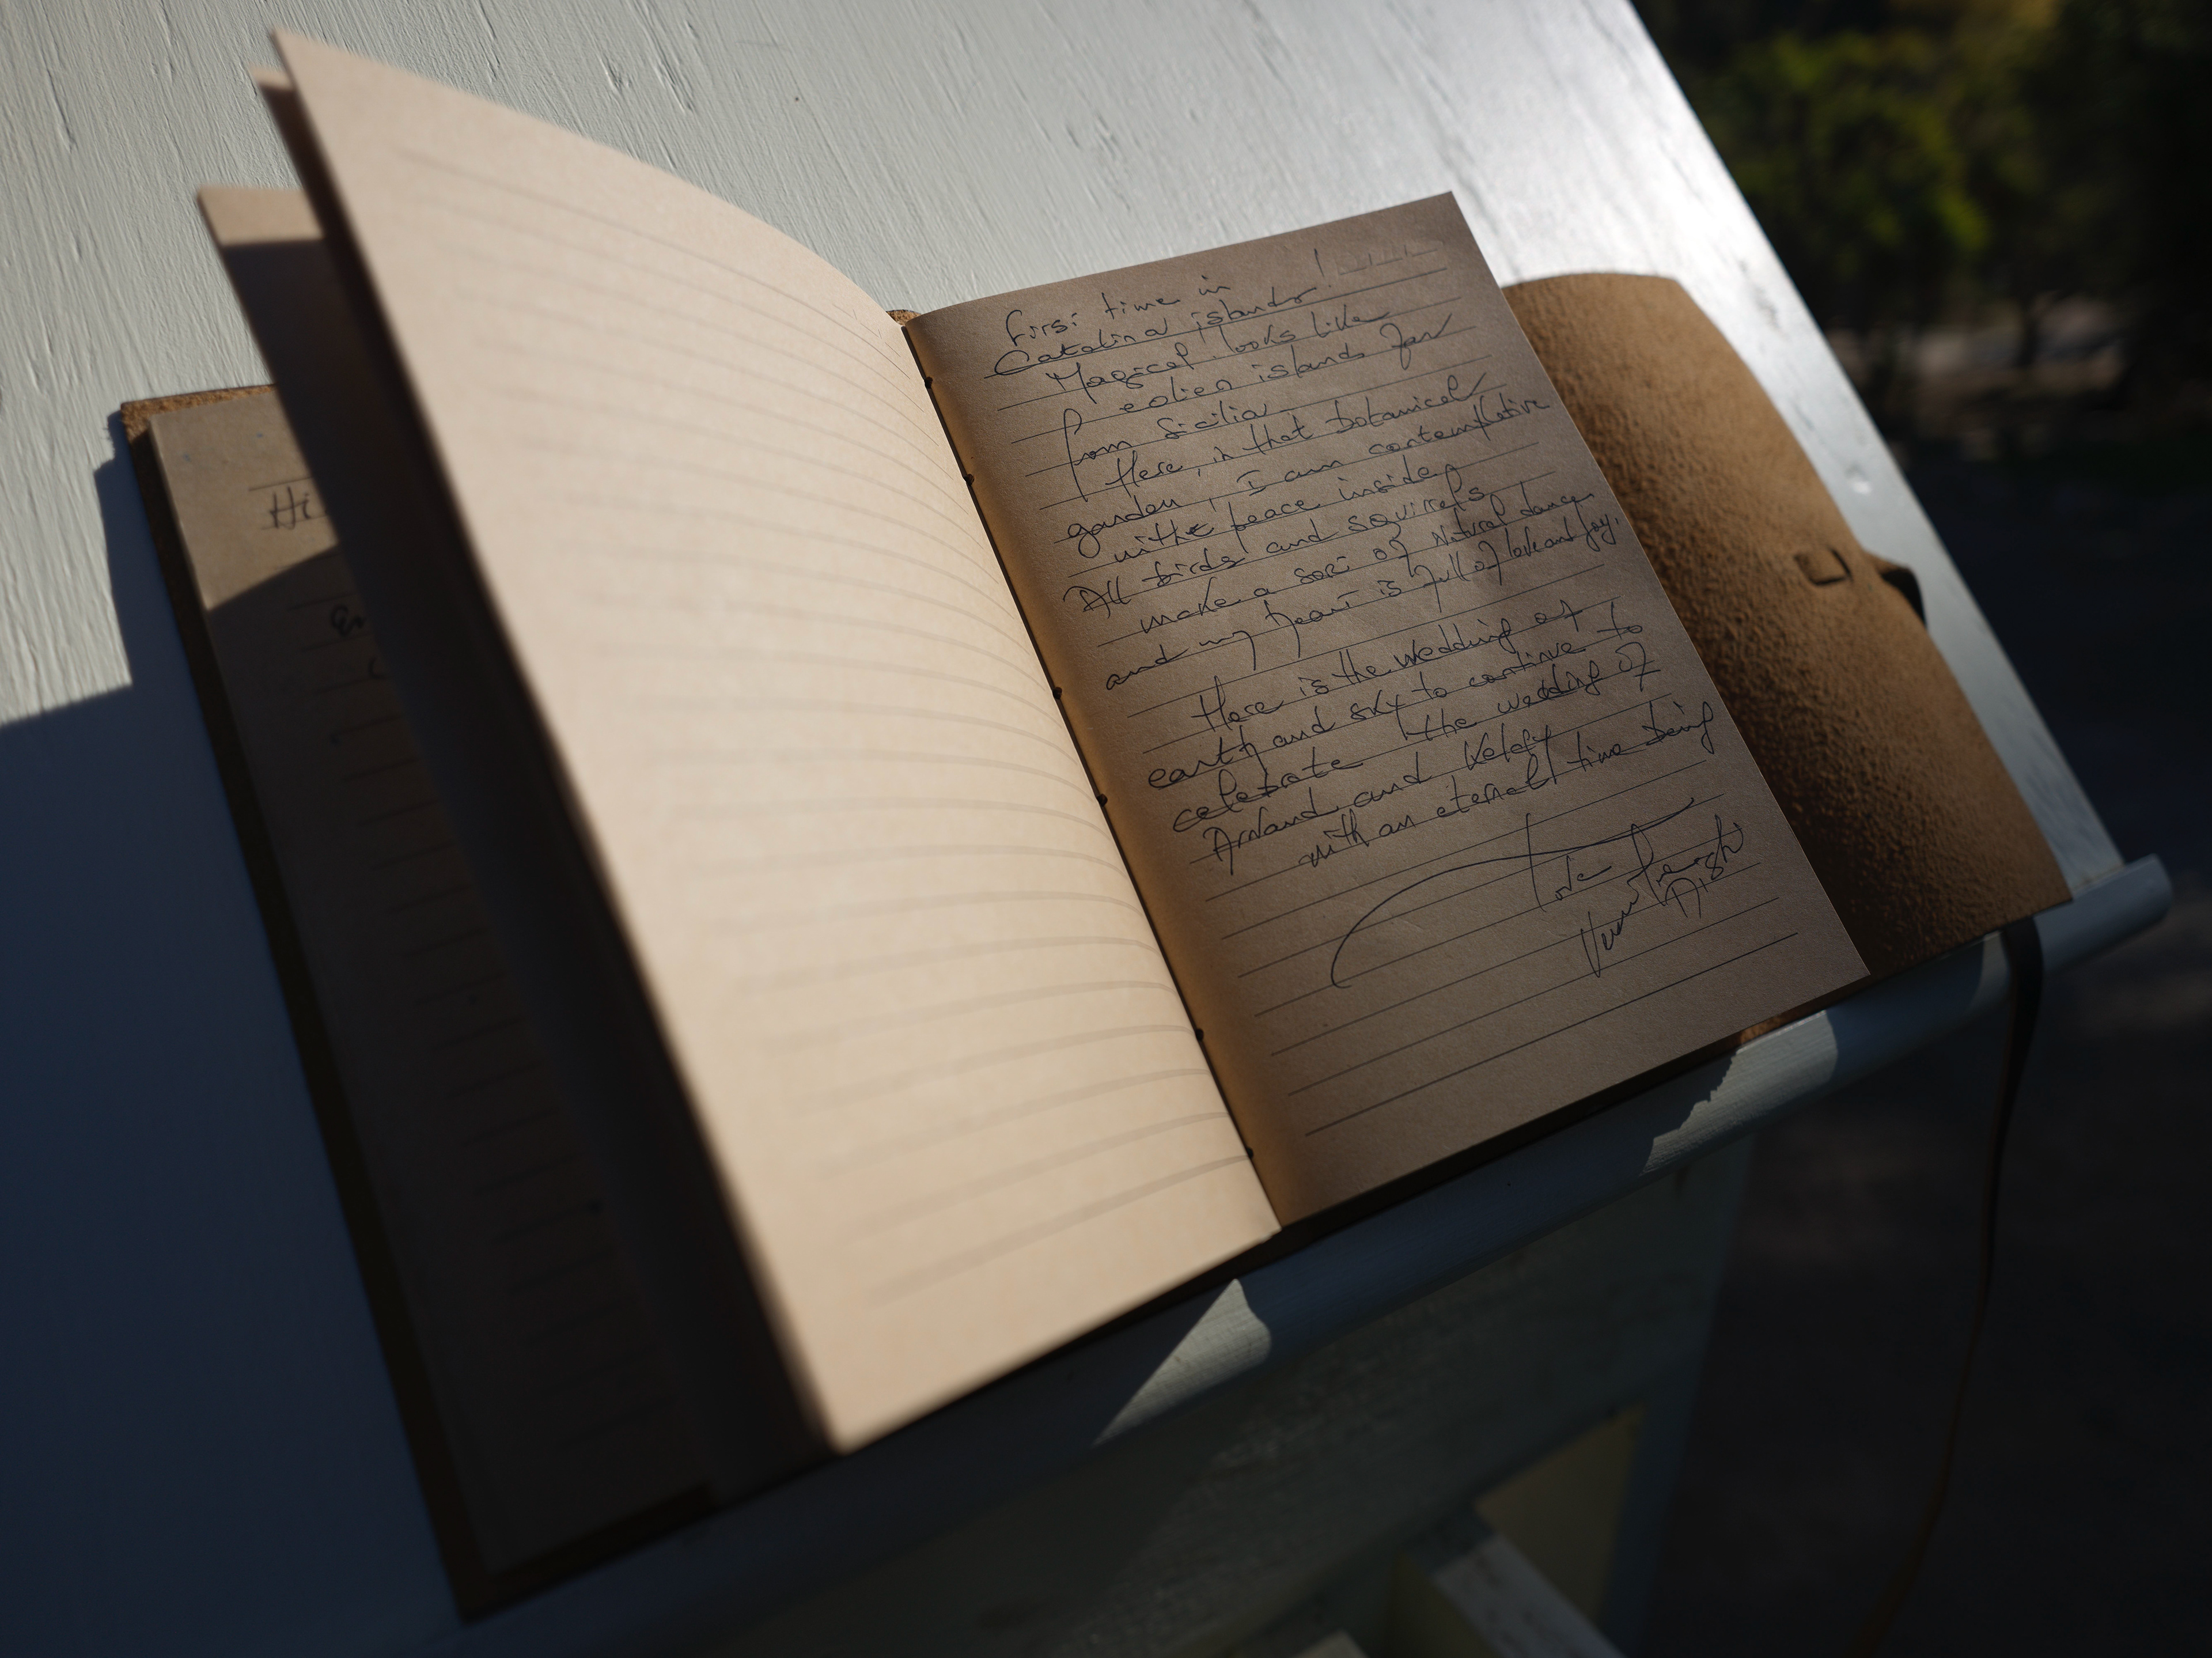 Hi
first time in
Catalina islands!
Magical looks like
eolien islands far
from Sicilia
Here, in that botanical
garden, I am contemplative
withe peace inside
All birds and squirels
make a sort of Natural dance
and my heart is full of love and joy.
Here is the wedding of
earth and sky to continue to
celebrate the wedding of
Arnaud and
with an eternal time being